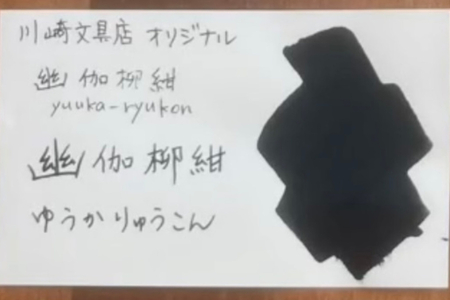 川崎文具店 オリジナル
幽伽柳紺
yuuka-ryukon
幽伽柳紺
ゆうかりゅうこん